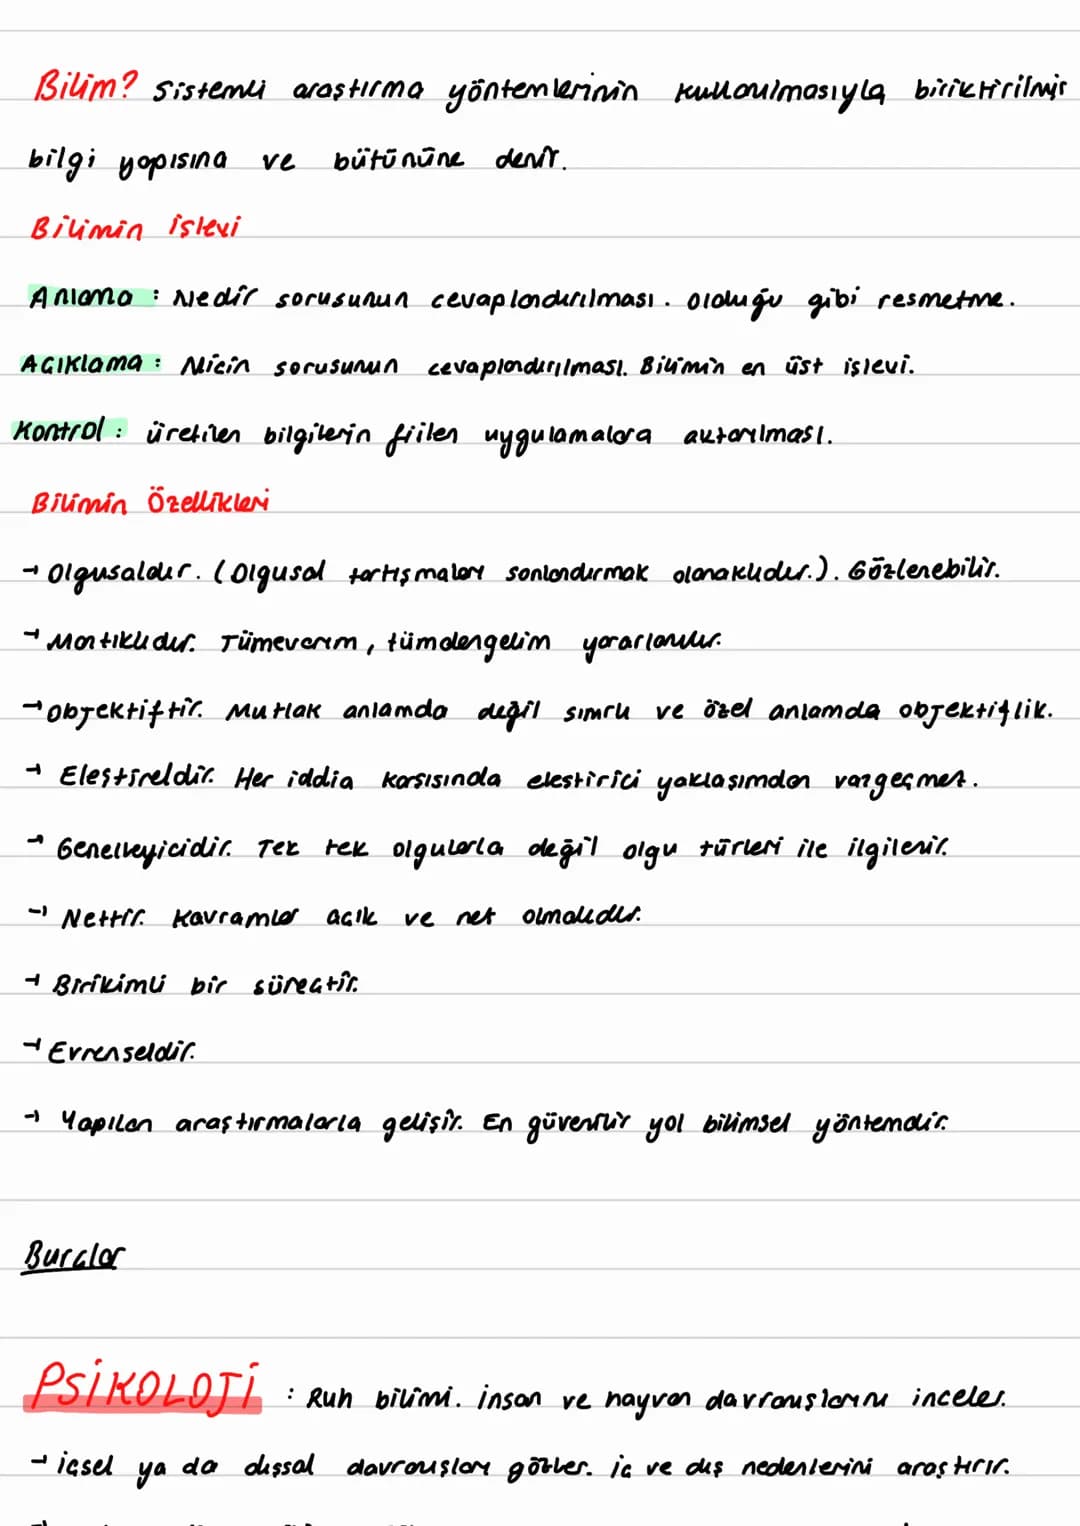 Bilim? Sistemli araştırma yöntemlerinin kullanılmasıyla biriktirilmiş
bilgi yapısına ve bütününe denir.
Bilimin işlevi
Anlama : Nedir sorusunun cevaplandırılması. Olduğu gibi resmetme.
Açıklama : Niçin sorusunun cevaplandırılması. Bilimin en üst işlevi.
Kontrol : üretilen bilgilerin fiilen uygulamalara aktarılması.
Bilimin Özellikleri
→ Olgusaldır. (Olgusal tartışmaları sonlandırmak olanaklıdır.). Gözlenebilir.
→ Mantıklıdır. Tümevarım, tümdengelim yararlanılır.
→ Objektiftir. Mutlak anlamda değil sınırlı ve özel anlamda objektiflik.
→ Eleştireldir. Her iddia karşısında eleştirici yaklaşımdan vazgeçmez.
→ Genelleyicidir. Tek tek olgularla değil olgu türleri ile ilgilenir.
→ Nettir. Kavramlar açık ve net olmalıdır.
→ Birikimli bir süreçtir.
→ Evrenseldir.
→ Yapılan araştırmalarla gelişir. En güvenilir yol bilimsel yöntemdir.
Burçlar
PSİKOLOJİ : Ruh bilimi. İnsan ve hayvan davranışlarını inceler.
→ içsel ya da dışsal davranışları gözler. iç ve dış nedenlerini araştırır.